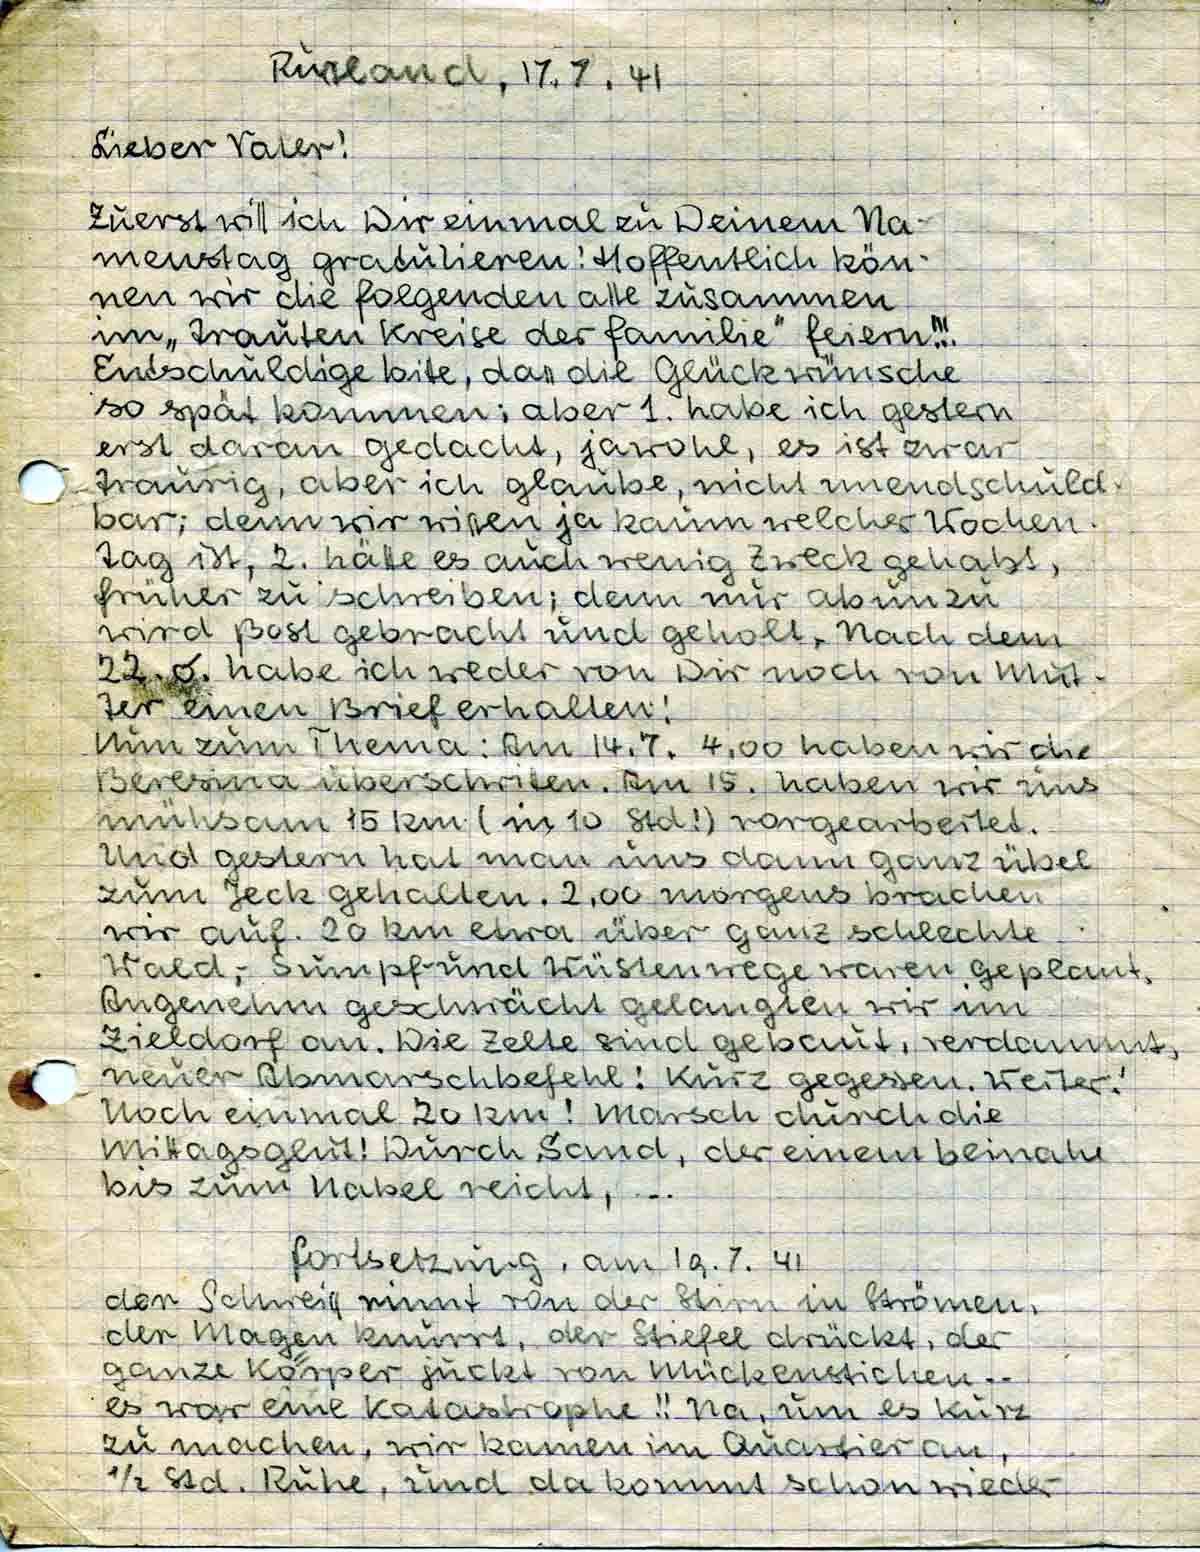 Russland, 17.7.41
Lieber Vater!
Zuerst will ich Dir einmal zu Deinem Na-
menstag gratulieren! Hoffentlich kön-
nen wir die folgenden alle zusammen
im „trauten Kreise der Familie" feiern!!!
Entschuldige bite, dass die Glückwünsche
so spät kommen; aber 1. habe ich gestern
erst daran gedacht, jawohl, es ist zwar
traurig, aber ich glaube, nicht unendschuld-
bar; denn wir wissen ja kaum welcher Wochen-
tag ist, 2. hätte es auch wenig Zweck gehabt,
früher zu schreiben; denn nur ab un zu
wird Post gebracht und geholt. Nach dem
22.6. habe ich weder von Dir noch von Mut-
ter einen Brief erhalten!
Nun zum Thema: Am 14.7. 4,00 haben wir die
Beresina überschriten. Am 15. haben wir uns
mühsam 15 km (in 10 Std!) vorgearbeitet.
Und gestern hat man uns dann ganz übel
zum Jeck gehalten. 2,00 morgens brachen
wir auf. 20 km etwa über ganz schlechte
Wald,- Sumpf- und Wüstenwege waren geplant.
Angenehm geschwächt gelangten wir im
Zieldorf an. Die Zelte sind gebaut, verdammt,
neuer Abmarschbefehl! Kurz gegessen. Weiter!
Noch einmal 20 km! Marsch durch die
Mittagsglut! Durch Sand, der einem beinahe
bis zum Nabel reicht, ...
Fortsetzung, am 19.7.41
der Schweiss rinnt von der Stirn in Strömen,
der Magen knurrt, der Stiefel drückt, der
ganze Körper juckt von Mückenstichen...
es war eine Katastrophe!! Na, um es kurz
zu machen, wir kamen im Quartier an,
1/2 Std. Ruhe, und da kommt schon wieder